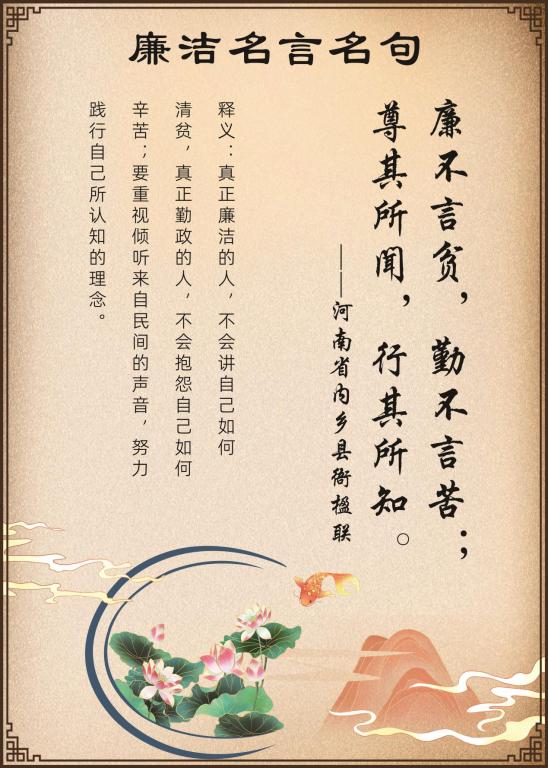 廉洁名言名句
廉不言贫，勤不言苦；
尊其所闻，行其所知。
——河南省内乡县衙楹联
释义：真正廉洁的人，不会讲自己如何
清贫，真正勤政的人，不会抱怨自己如何
辛苦；要重视倾听来自民间的声音，努力
践行自己所认知的理念。